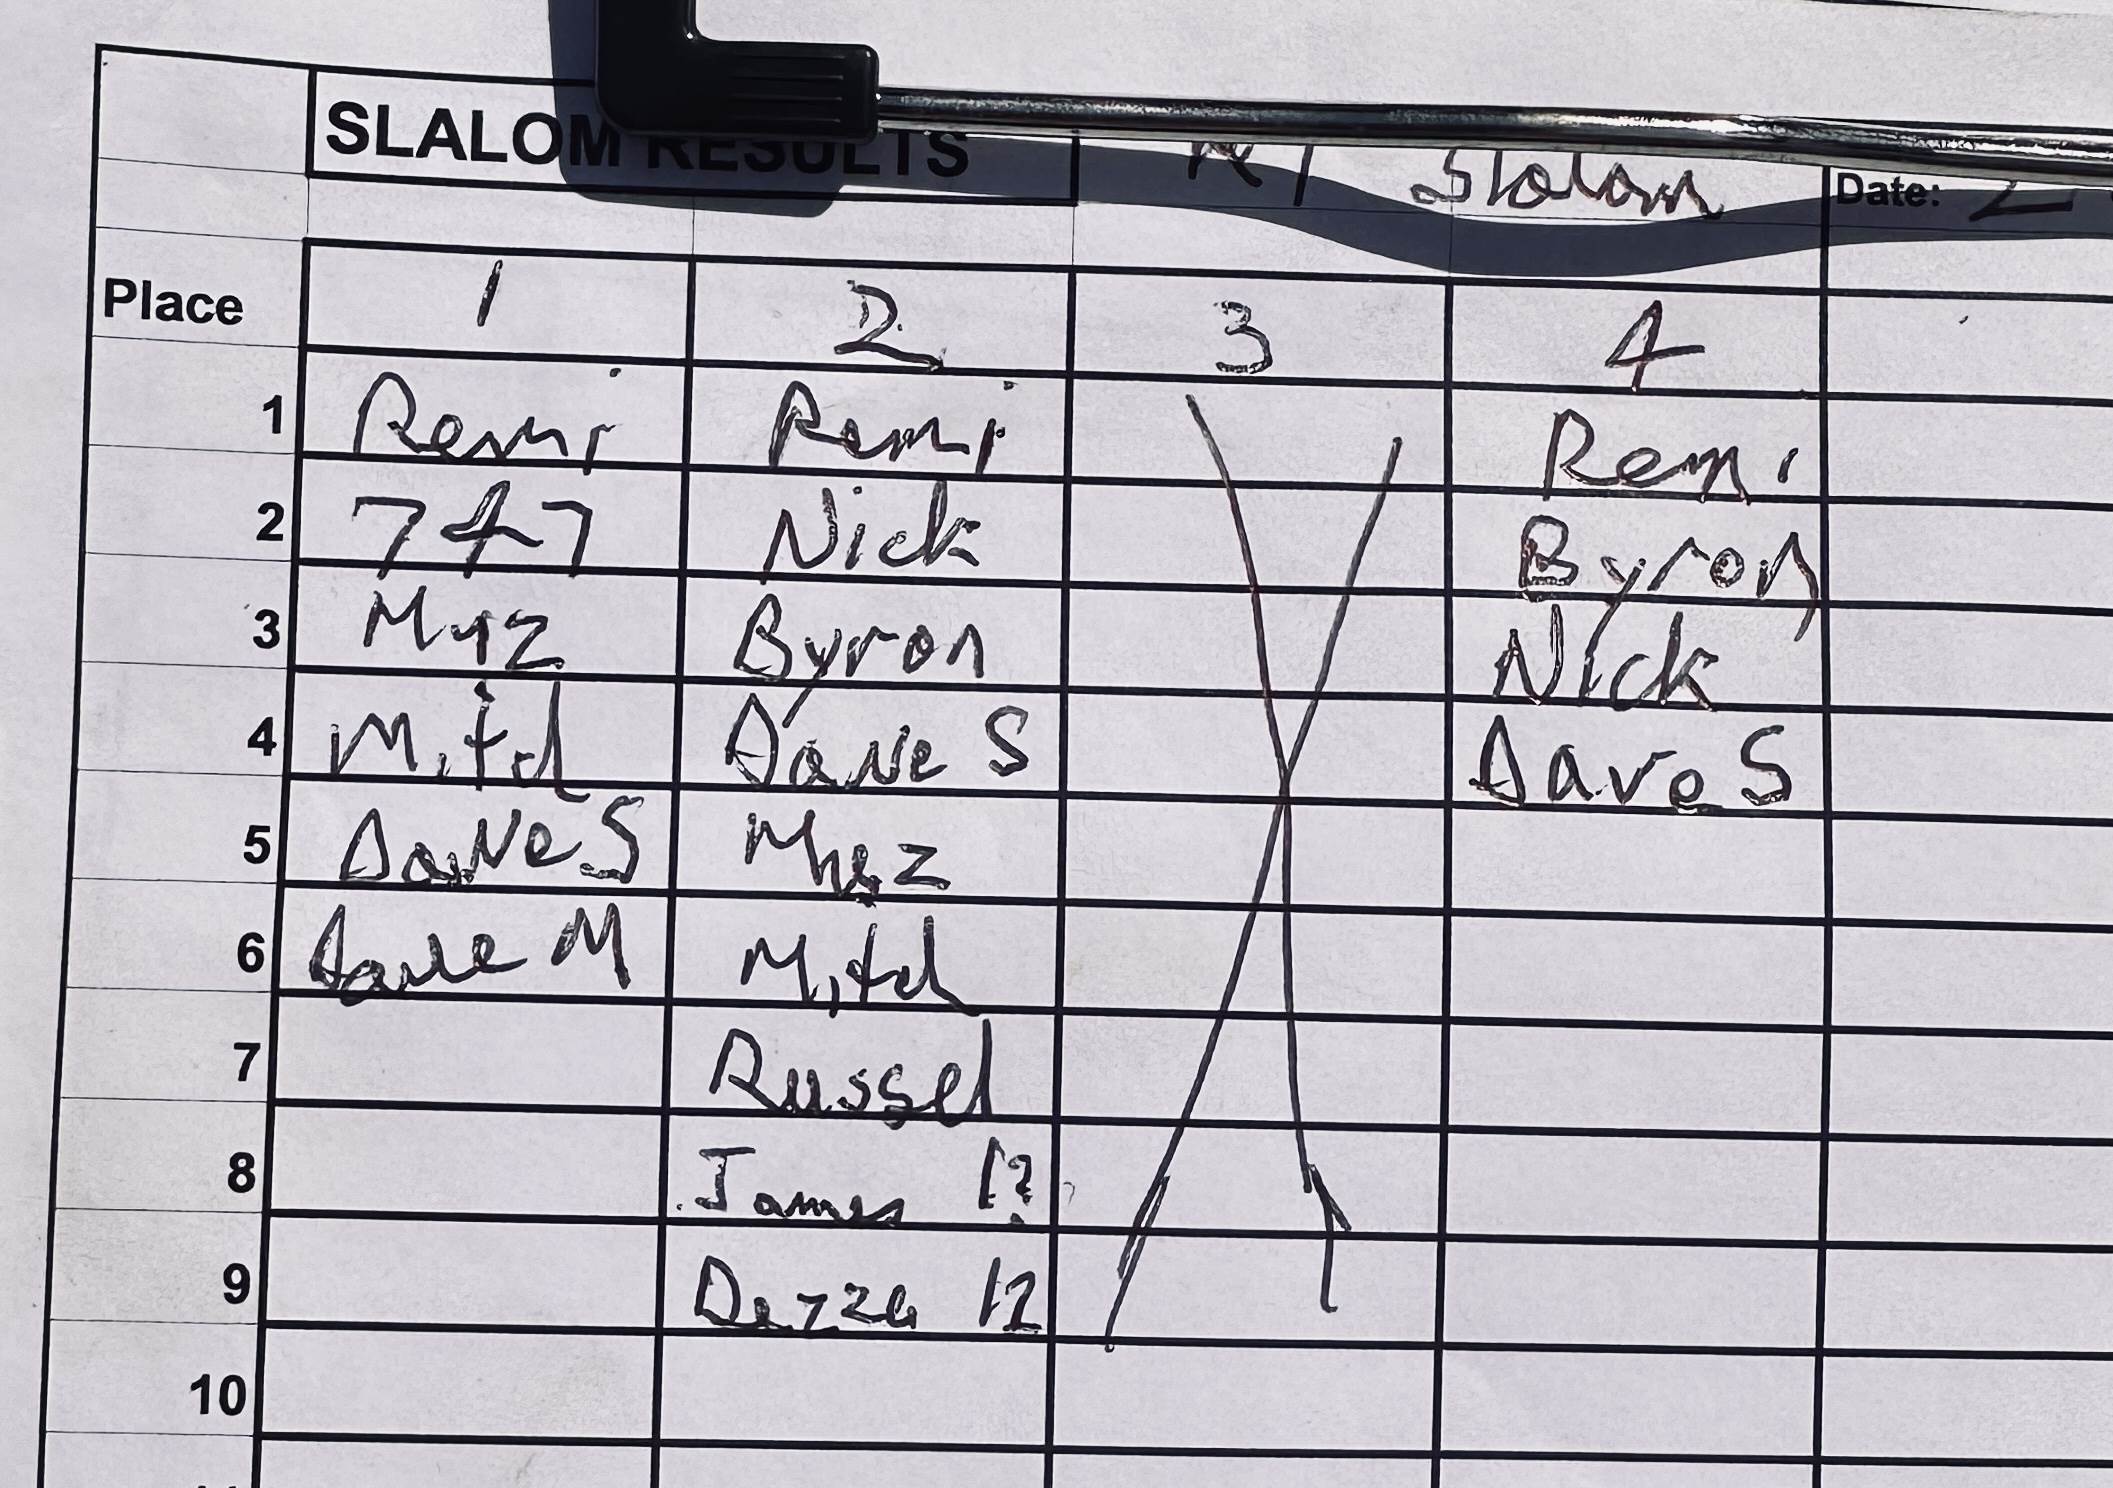 SLALOM RESULTS
Slalom
Date:
Place 1 2 3 4
1 Remi Remi Remi
2 747 Nick Byron
3 Byron Nick
4 Mitch Dave S Dave S
5 Dave S
6 Dave M Mitch
7 Russel
8 James
9 Dezza 12
10